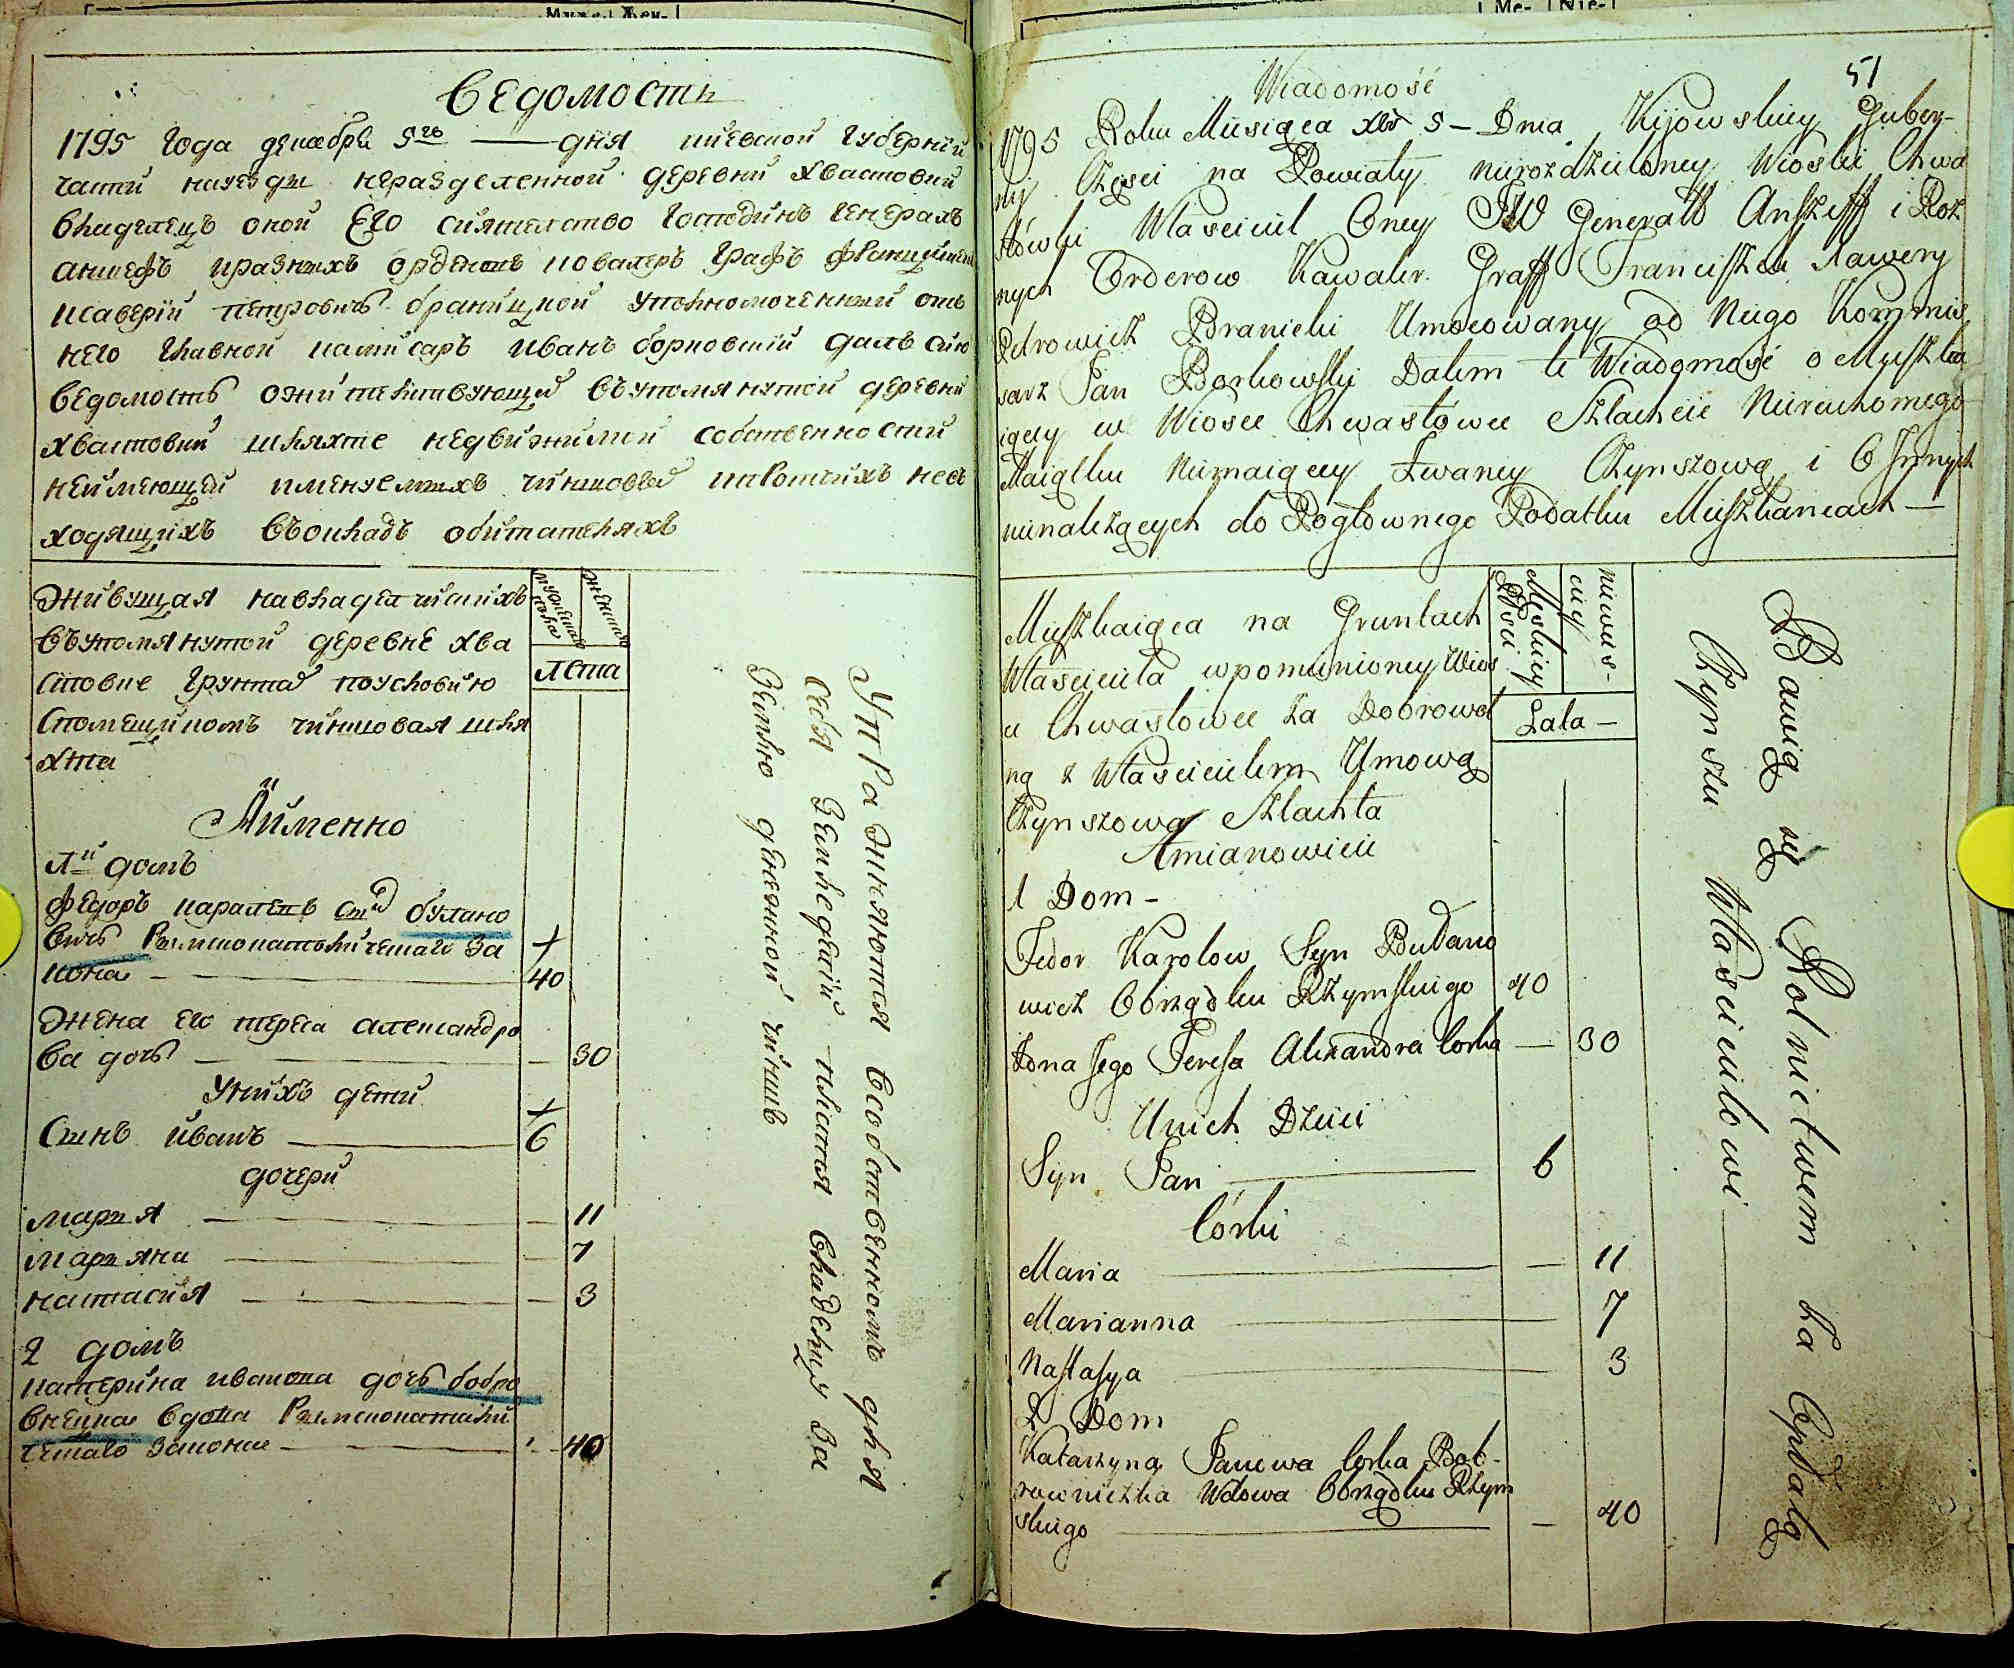 Муже- Жен-
Ведомость
1795 года декабря 5го — дня киевской губернии
части науезды неразделенной деревни хвастовки
владелецъ оной Его сиятелство господинъ генералъ
аншефъ иразныхъ орденовъ ковалеръ графъ
ксаверий петровичъ браницкой уполномоченный отъ
него главной камисаръ иванъ борковский далъ сию
ведомость ожителствующей въупомянутой деревни
хвастовки шляхте недвижимой собственности
неимеющей именуемыхъ чиншовая
ходящихъ въокладъ обитателяхъ
живущая навладелчискихъ
въупомянутой деревне хва
стовке грунтах поусловию
спомещикомъ чиншовая шля
хта
мужеска пола
женска
лета
Аименно
1й домъ
федоръ каралевъ сын булано
вичъ Римскокатоличешаго за
кона — 40
жена его тереса александро
ва дочь — 30
Унихъ дети
Сынъ иванъ — 6
дочери
марья — 11
марьяна — 7
настасия — 3
2 домъ
катерина иванова дочь бобро
вницка вдова Римскокатоли
чешаго закона — 40
Упражняются всобственномъ для
себя земледелии платя владелцу за
землю денежной чиншъ
Me- Nie-
51
Wiadomość
1795 Roku Miesiąca Xbr 5 – Dnia Kijowskiey Guber-
nij Części na Powiaty nierozdzieloney Wioski Chwa
stówki Własciciel Oney JW Generall Ansheff i Roz
nych Orderow Kawaler Graff Franciszek Xawery
Petrowicz Branicki Umocowany od Niego Kommis
sarz Jan Borkowski Dałem te Wiadomość o Mieszka
iącey w Wiosce Chwastówce Szlachcie Nieruchomego
Maiątku Niemaiącey Zwaney Czynszową i O Innych
nienależących do Pogłownego Podatku Mieszkańcach —
Mieszkaiąca na Gruntach
Własciciela wpomienioney Wios
ce Chwastowce za Dobrowol
ną z Włascicielem Umową
Czynszowa Szlachta
Męskiey Płci
niewies-
ciey
Lata –
Amianowicie
1 Dom –
Fedor Karolow Syn Budano
wicz Obrządku Rzymskiego 40
Żona Jego Teresa Alexandra Corka — 30
Unich Dzieci
Syn Jan — 6
Córki
Maria — 11
Marianna — 7
Nastasya — 3
2 Dom
Katarzyna Janowa Corka Bob-
rowniczka Wdowa Obrządku Rzym
skiego — 40
Bawią się Rolnictwem za Opłatą
Czynszu Włascicielowi —